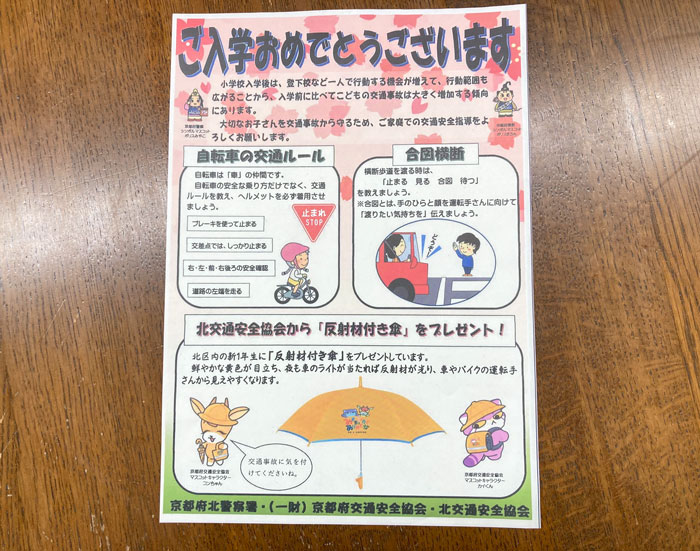 ご入学おめでとうございます
小学校入学後は、登下校など一人で行動する機会が増えて、行動範囲も
広がることから、入学前に比べてこどもの交通事故は大きく増加する傾向
にあります。
大切なお子さんを交通事故から守るため、ご家庭での交通安全指導をよ
ろしくお願いします。
京都府警察
シンボルマスコット
ポリスみやこ
京都府警察
シンボルマスコット
ポリスまろん
自転車の交通ルール
自転車は「車」の仲間です。
自転車の安全な乗り方だけでなく、交通
ルールを教え、ヘルメットを必ず着用させ
ましょう。
ブレーキを使って止まる
交差点では、しっかり止まる
右・左・前・右後ろの安全確認
道路の左端を走る
止まれ
STOP
合図横断
横断歩道を渡る時は、
「止まる 見る 合図 待つ」
を教えましょう。
※合図とは、手のひらと顔を運転手さんに向けて
「渡りたい気持ちを」伝えましょう。
北交通安全協会から「反射材付き傘」をプレゼント!
北区内の新1年生に「反射材付き傘」をプレゼントしています。
鮮やかな黄色が目立ち、夜も車のライトが当たれば反射材が光り、車やバイクの運転手
さんから見えやすくなります。
交通事故に気を付
けてくださいね。
京都府交通安全協会
マスコットキャラクター
コンちゃん
京都府交通安全協会
マスコットキャラクター
カイくん
京都府北警察署・(一財)京都府交通安全協会・北交通安全協会